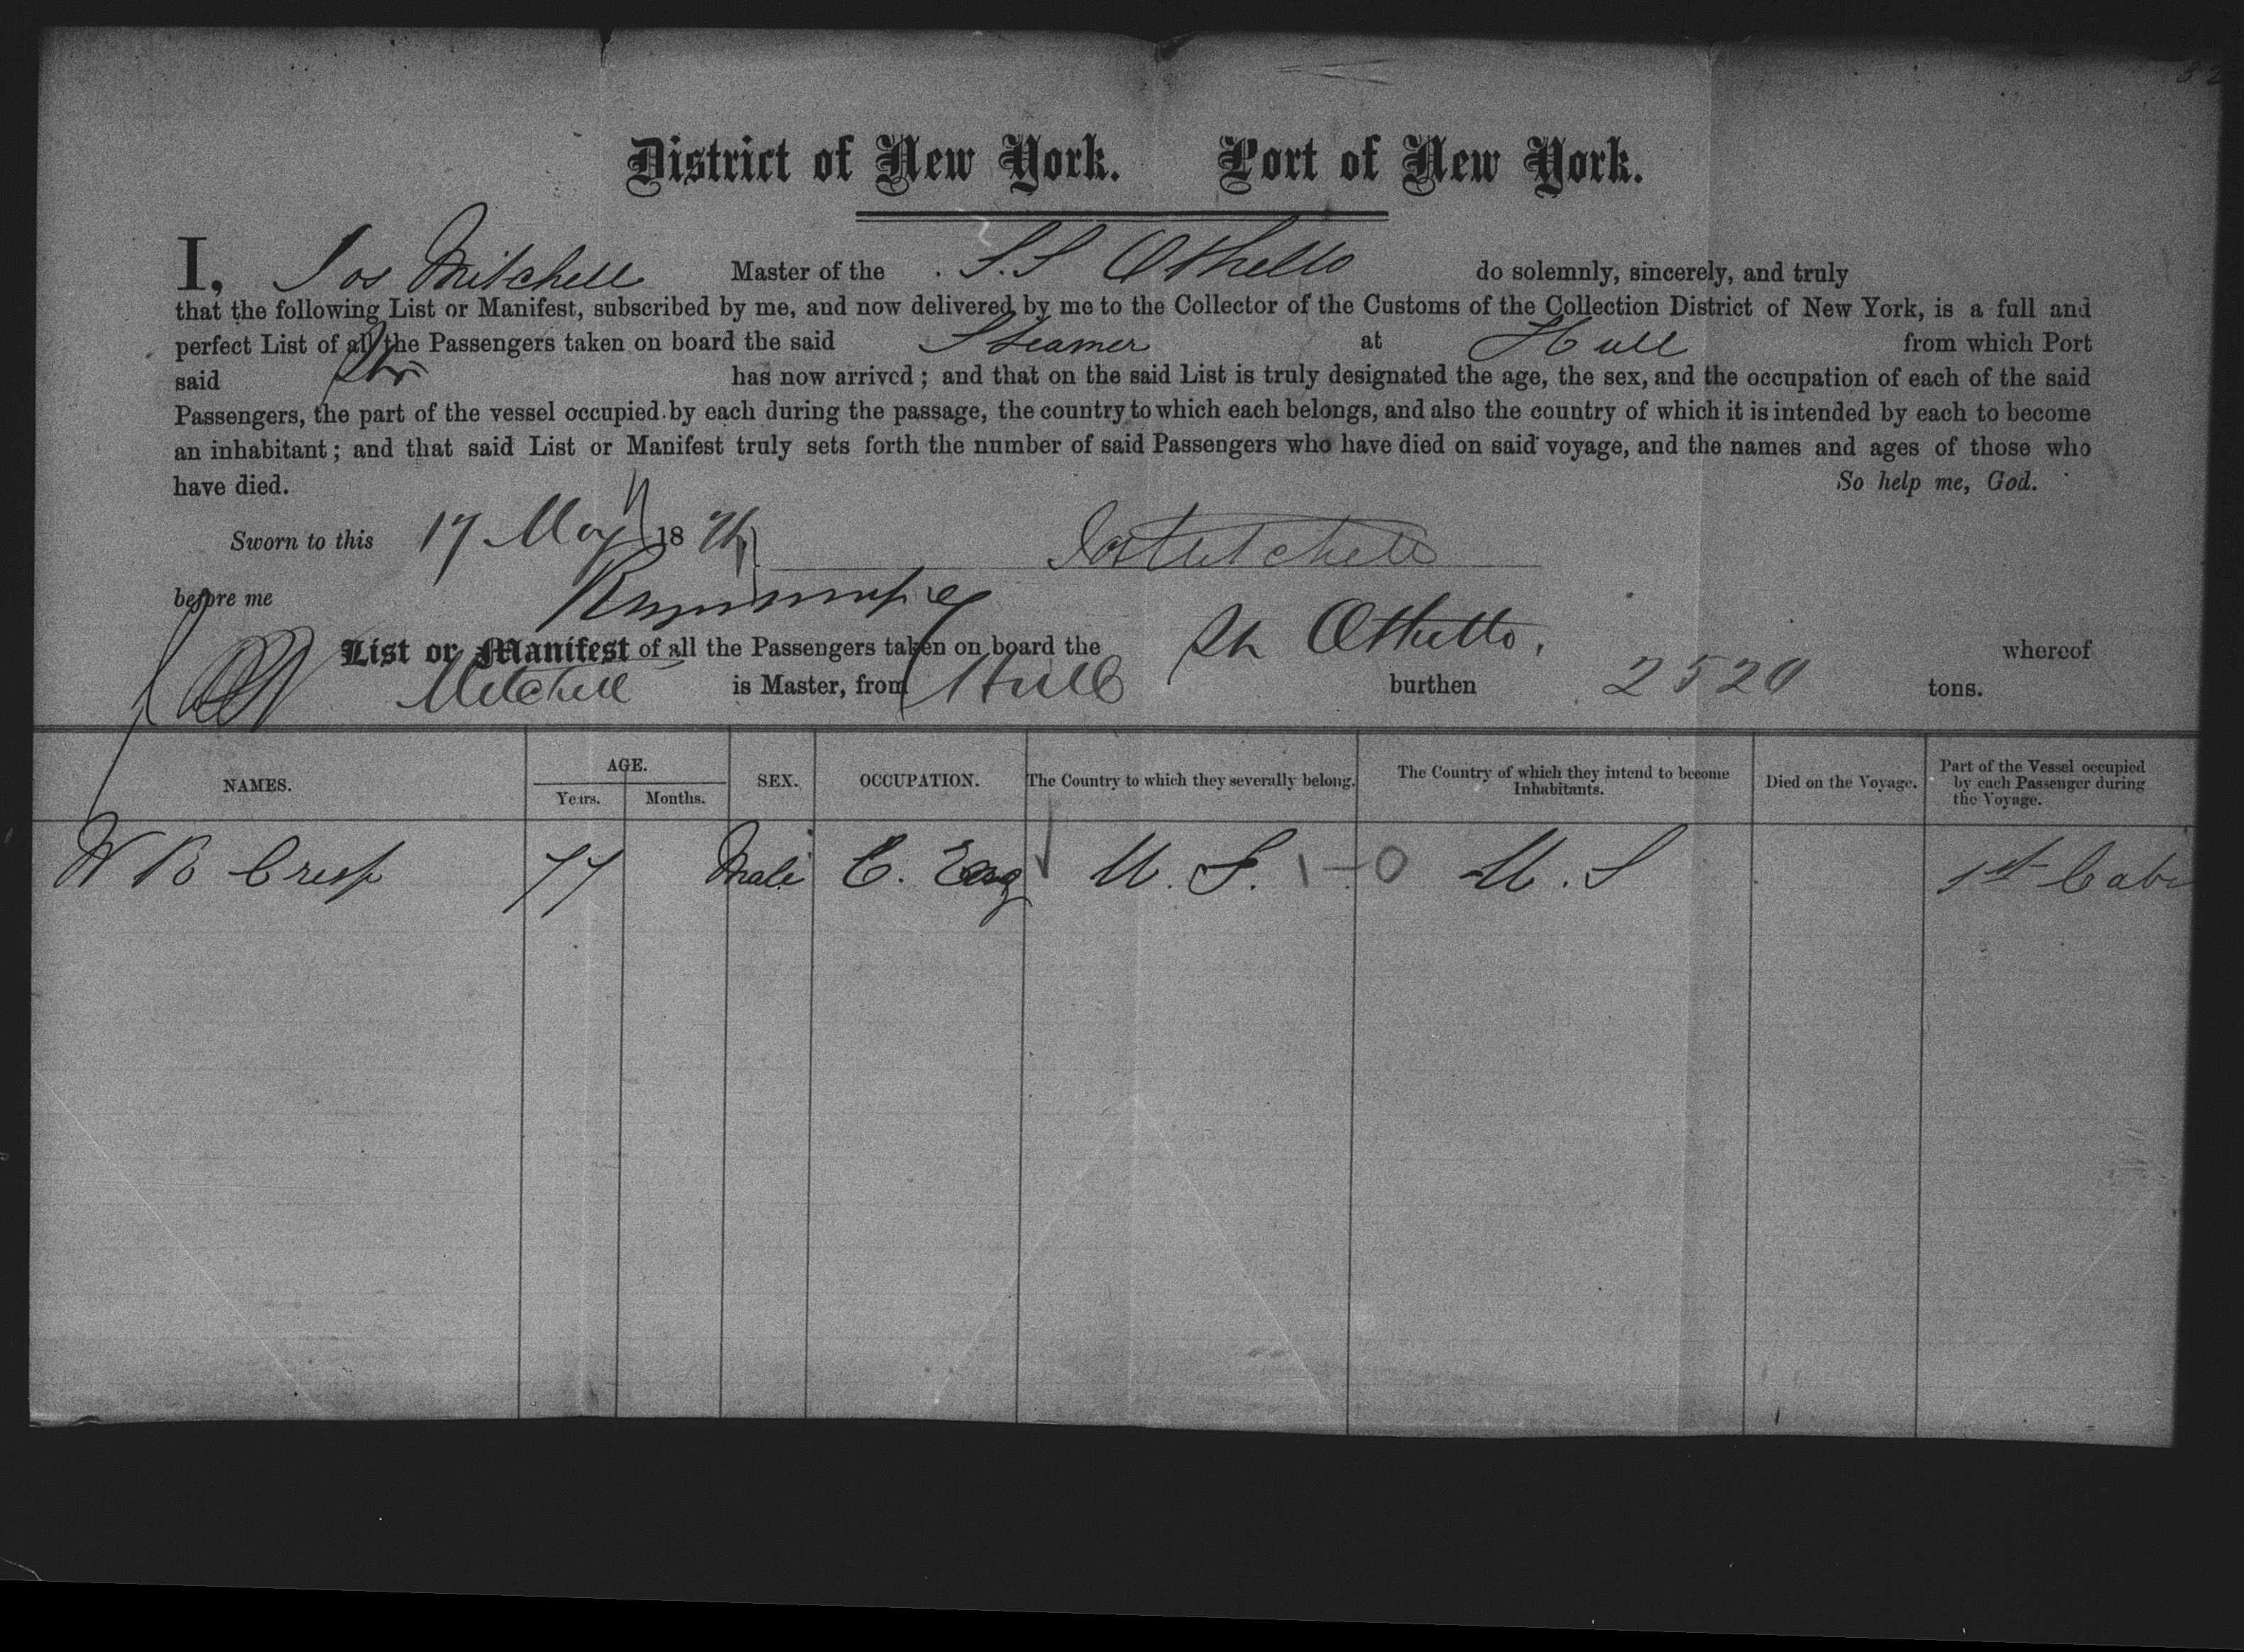 52
District of New York. Port of New York.
I, Jos Mitchell Master of the S.S Othello do solemnly, sincerely, and truly
that the following List or Manifest, subscribed by me, and now delivered by me to the Collector of the Customs of the Collection District of New York, is a full and
perfect List of all the Passengers taken on board the said Steamer at Hull from which Port
said Str has now arrived; and that on the said List is truly designated the age, the sex, and the occupation of each of the said
Passengers, the part of the vessel occupied by each during the passage, the country to which each belongs, and also the country of which it is intended by each to become
an inhabitant; and that said List or Manifest truly sets forth the number of said Passengers who have died on said voyage, and the names and ages of those who
have died. So help me, God.
Sworn to this 17 May 18 Jos Mitchell
before me
List or Manifest of all the Passengers taken on board the Othello, whereof
Mitchell is Master, from Hull burthen 2520 tons.
NAMES. AGE. Years. Months. SEX. OCCUPATION. The Country to which they severally belong. The Country of which they intend to become Inhabitants. Died on the Voyage. Part of the Vessel occupied by each Passenger during the Voyage.
W B Crisp 77 Male C. Eng U. S. 1-0 U. S 1st Cabi